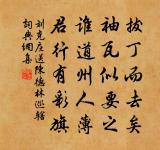 拔丁而去矣
袖瓦似要之
誰道州人薄
君行有彩旗
刘克庄送陳德林巡轄
詞典網集